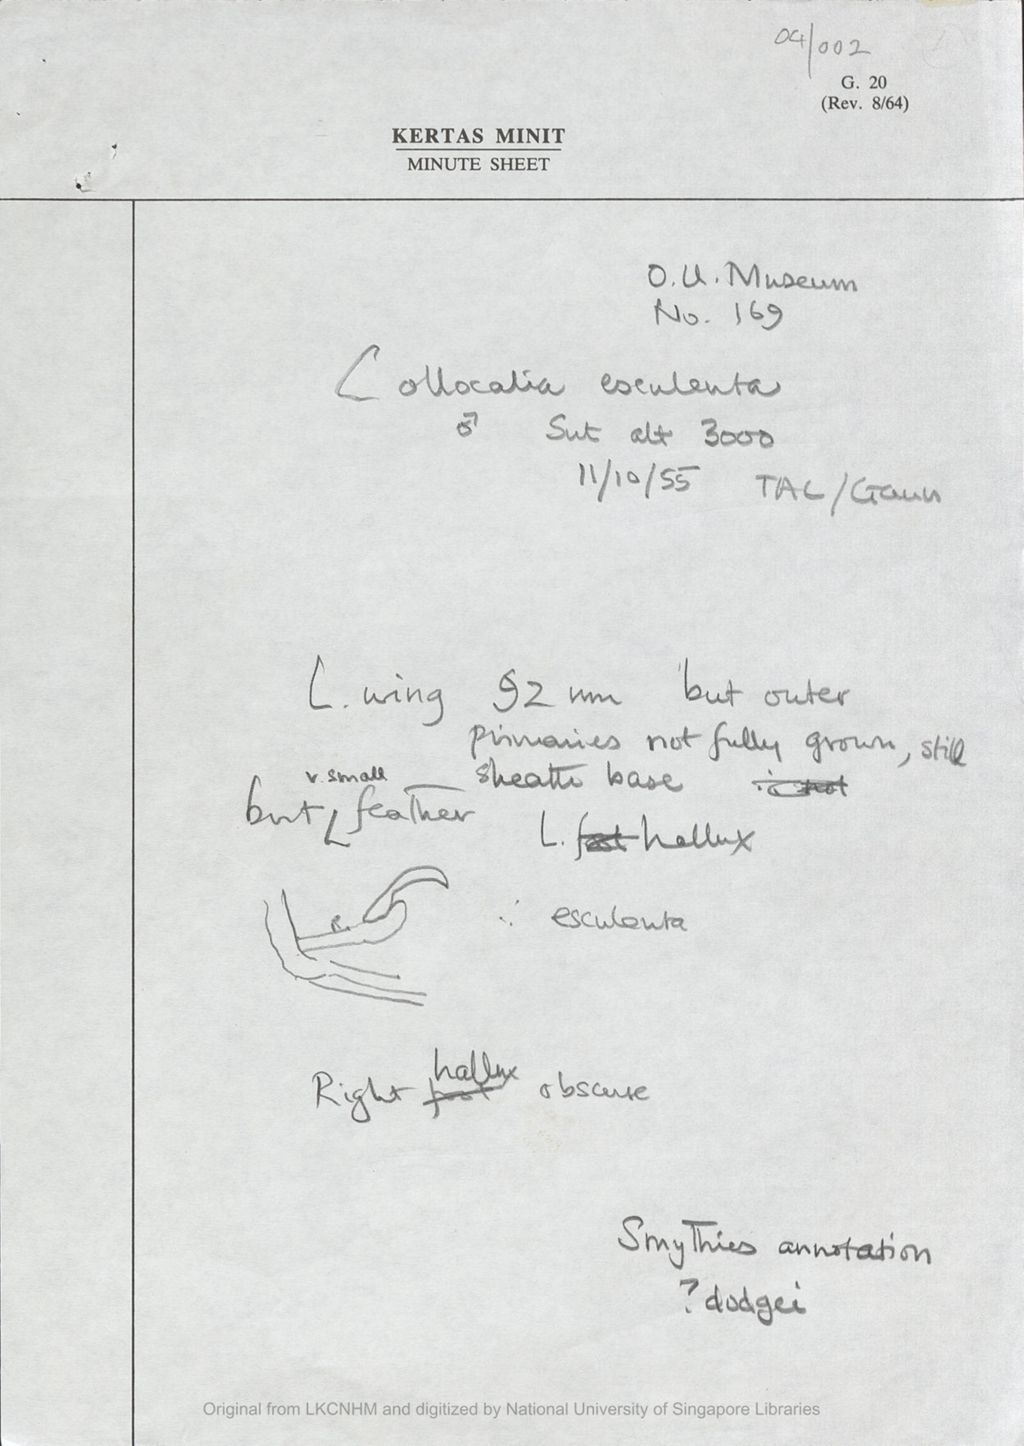 04/002
G. 20
(Rev. 8/64)
KERTAS MINIT
MINUTE SHEET
O.U. Museum
No. 169
Collocalia esculenta
♂ Sut alt 3000
11/10/55 TAL/Gaun
L. wing 92 mm but outer
primaries not fully grown, still
sheath base
v. small
but L feather
L. foot hallux
R.
∴ esculenta
hallux
Right foot obscure
Smythies annotation
? dodgei
Original from LKCNHM and digitized by National University of Singapore Libraries